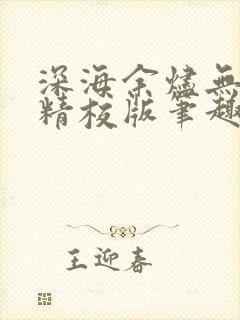 深海余烬無
精校版筆趣
王迎春